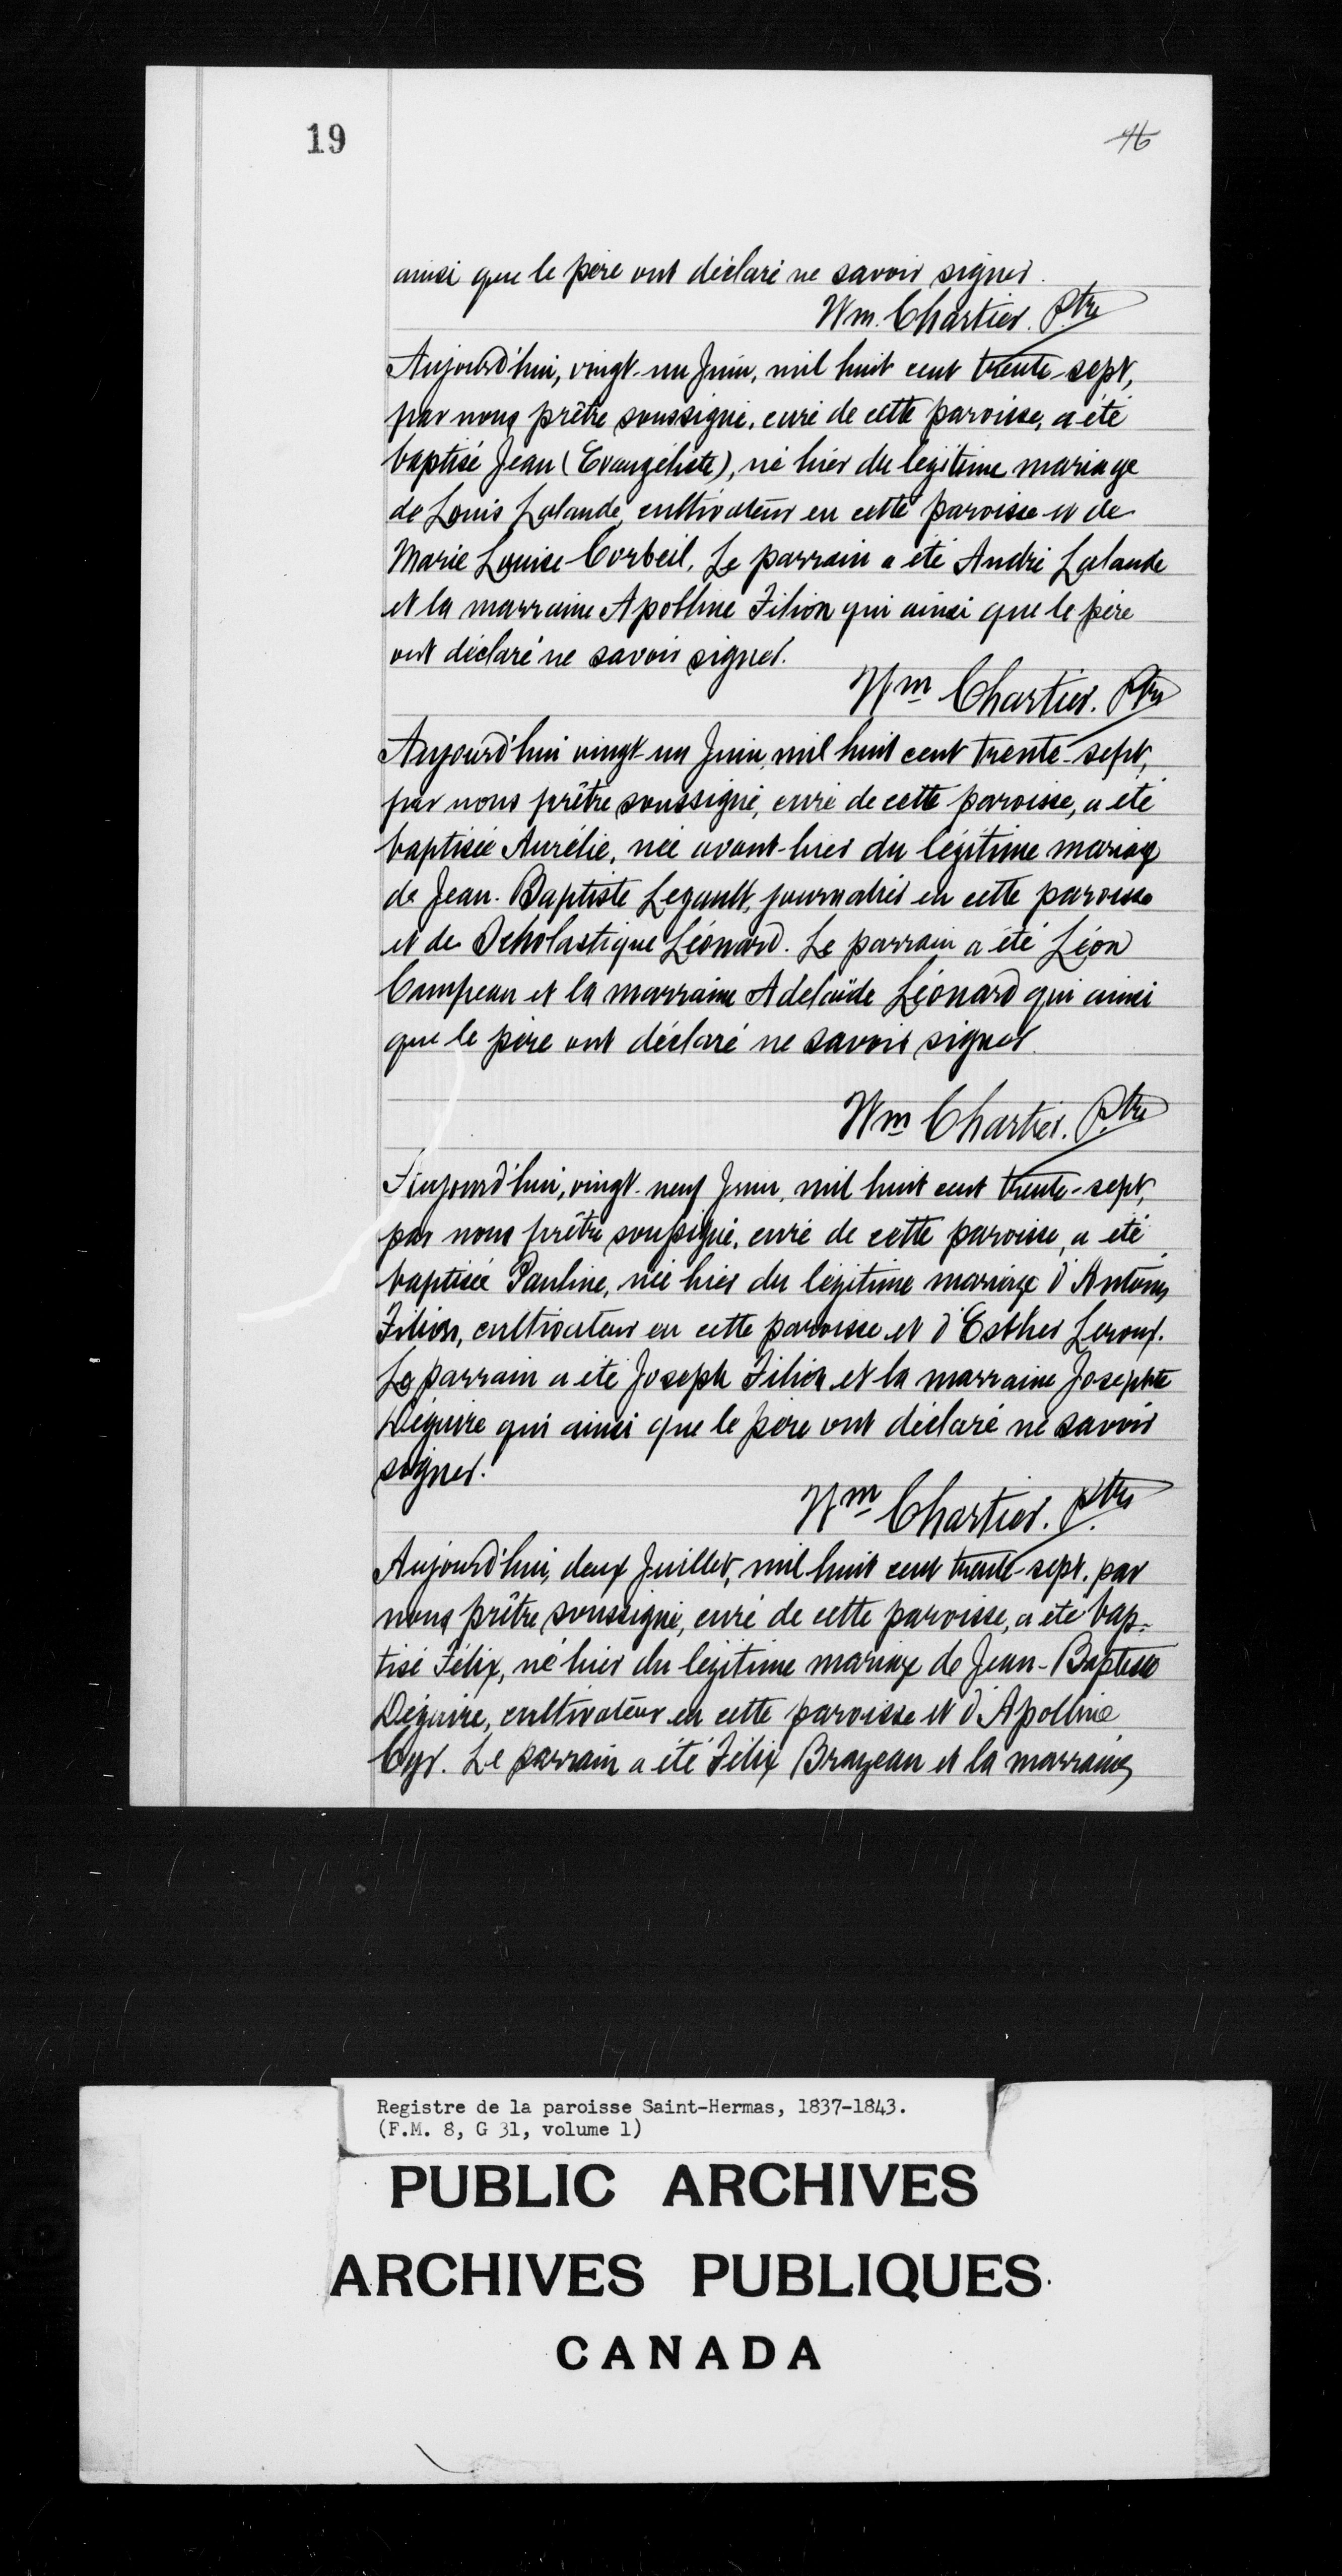 19
16
ainsi que le père ont déclaré ne savoir signer.
Wm. Chartier. Ptre
Aujourd'hui, vingt-un Juin, mil huit cent trente-sept,
par nous prêtre soussigné, curé de cette paroisse, a été
baptisé Jean (Evangéliste), né hier du légitime mariage
de Louis Lalande, cultivateur en cette paroisse et de
Marie Louise Corbeil. Le parrain a été André Lalande
et la marraine Apolline Filion qui ainsi que le père
ont déclaré ne savoir signer.
Wm Chartier. Ptre
Aujourd'hui vingt-un Juin, mil huit cent trente-sept,
par nous prêtre soussigné, curé de cette paroisse, a été
baptisée Aurélie, née avant-hier du légitime mariage
de Jean-Baptiste Legault, journalier en cette paroisse
et de Scholastique Léonard. Le parrain a été Léon
Campeau et la marraine Adelaïde Léonard qui ainsi
que le père ont déclaré ne savoir signer.
Wm Chartier. Ptre
Aujourd'hui, vingt-neuf Juin, mil huit cent trente-sept,
par nous prêtre soussigné, curé de cette paroisse, a été
baptisée Pauline, née hier du légitime mariage d'Antoine
Filion, cultivateur en cette paroisse et d'Esther Leroux.
Le parrain a été Joseph Filion et la marraine Josephte
Déguire qui ainsi que le père ont déclaré ne savoir
signer.
Wm Chartier. Ptre
Aujourd'hui, deux Juillet, mil huit cent trente-sept, par
nous prêtre soussigné, curé de cette paroisse, a été bap-
tisé Félix, né hier du légitime mariage de Jean-Baptiste
Déguire, cultivateur en cette paroisse et d'Apolline
Cyr. Le parrain a été Félix Brazeau et la marraine
Registre de la paroisse Saint-Hermas, 1837-1843.
(F.M. 8, G 31, volume 1)
PUBLIC ARCHIVES
ARCHIVES PUBLIQUES
CANADA